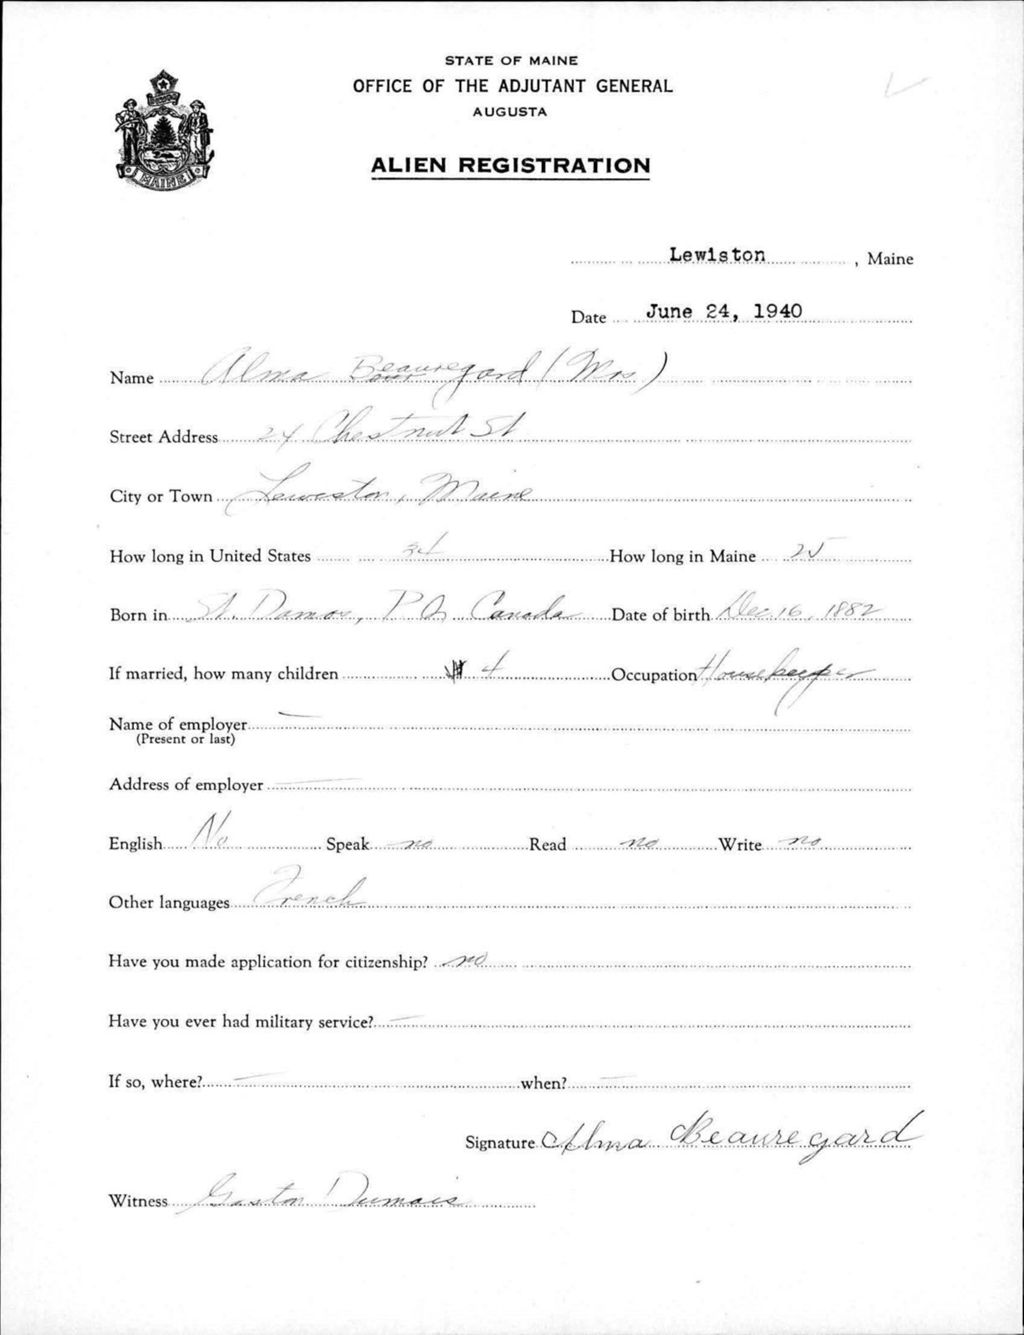 STATE OF MAINE
OFFICE OF THE ADJUTANT GENERAL
AUGUSTA
ALIEN REGISTRATION
MAINE
Lewiston, Maine
Date June 24, 1940
Name Alma Beauregard (Mrs)
Street Address 24 Chestnut St
City or Town Lewiston, Maine
How long in United States How long in Maine 25
Born in St. P.Q. Canada Date of birth Dec 16, 1882
If married, how many children 4 Occupation Housekeeper
Name of employer —
(Present or last)
Address of employer —
English No Speak no Read no Write no
Other languages French
Have you made application for citizenship? no
Have you ever had military service? —
If so, where? — when? —
Signature Alma Beauregard
Witness Gaston Dumais